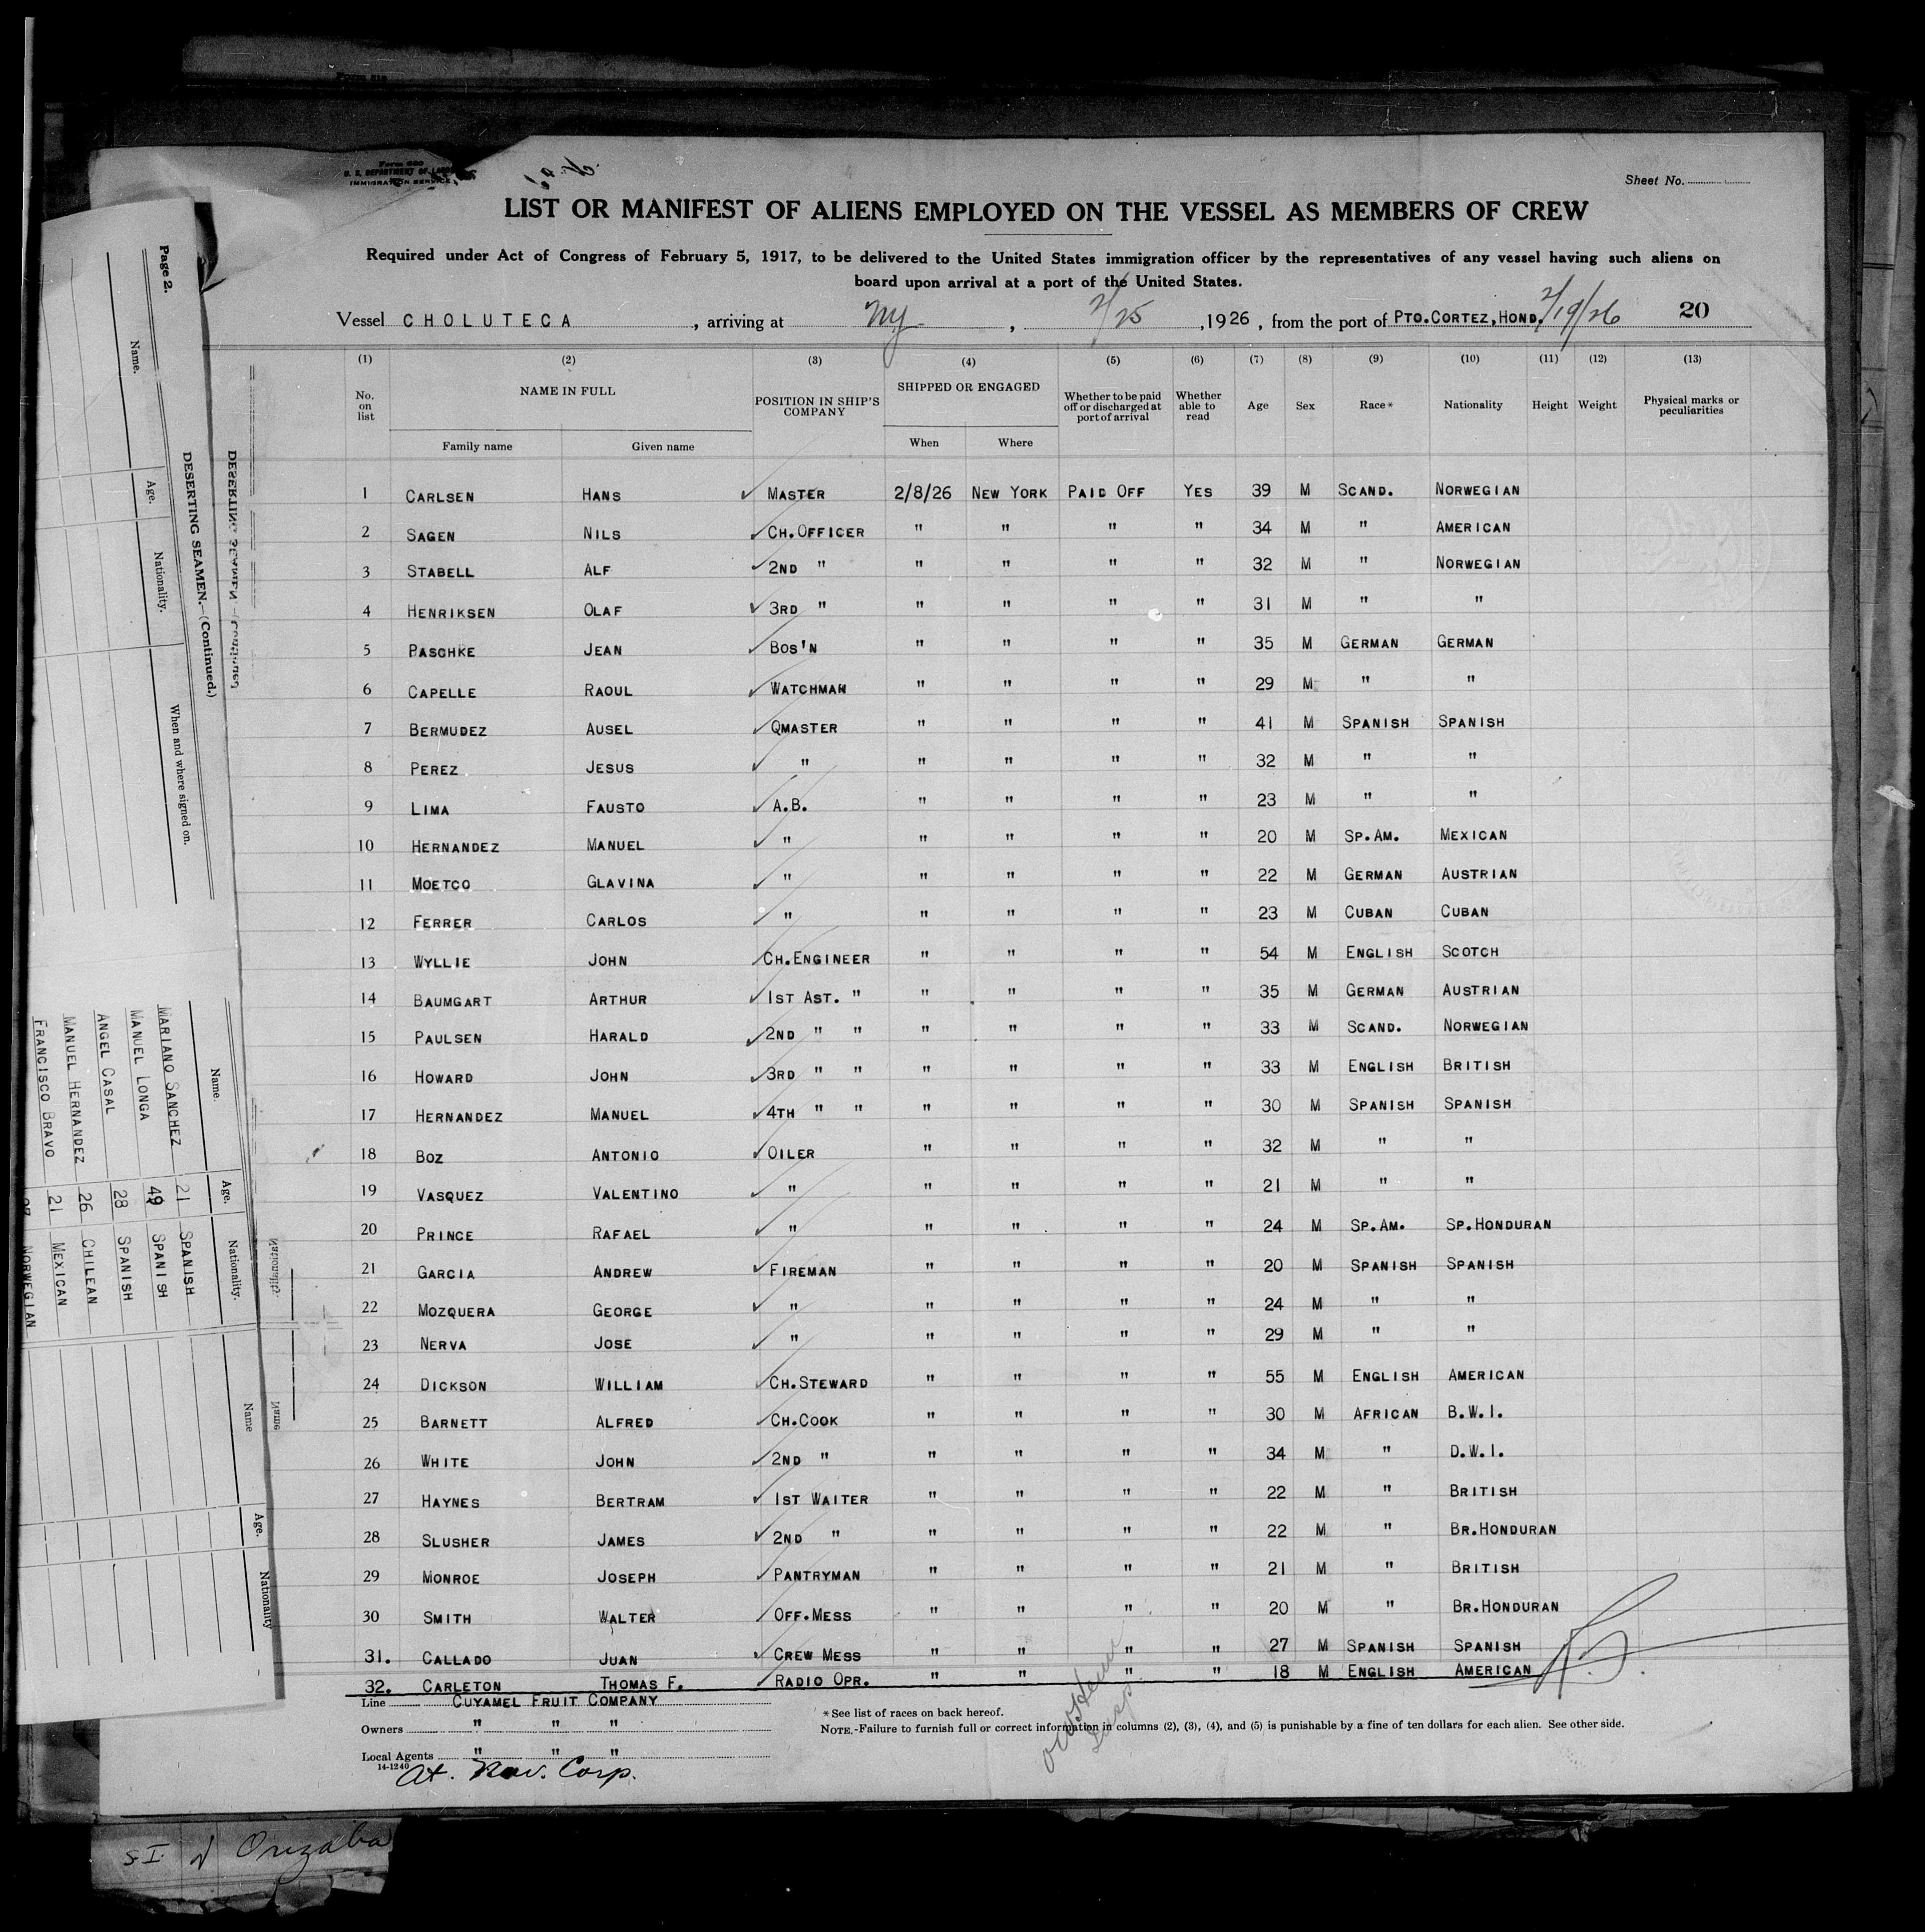 Form 680
U. S. DEPARTMENT OF LABOR
IMMIGRATION SERVICE
Sheet No.
LIST OR MANIFEST OF ALIENS EMPLOYED ON THE VESSEL AS MEMBERS OF CREW
Required under Act of Congress of February 5, 1917, to be delivered to the United States immigration officer by the representatives of any vessel having such aliens on
board upon arrival at a port of the United States.
Vessel CHOLUTECA, arriving at NY, 2/25, 1926, from the port of PTO.CORTEZ, HOND. 2/19/26 20
(1) (2) (3) (4) (5) (6) (7) (8) (9) (10) (11) (12) (13)
No. on list NAME IN FULL Family name Given name POSITION IN SHIP'S COMPANY SHIPPED OR ENGAGED When Where Whether to be paid off or discharged at port of arrival Whether able to read Age Sex Race* Nationality Height Weight Physical marks or peculiarities
1 CARLSEN HANS MASTER 2/8/26 NEW YORK PAID OFF YES 39 M SCAND. NORWEGIAN
2 SAGEN NILS CH.OFFICER " " " " 34 M " AMERICAN
3 STABELL ALF 2ND " " " " " 32 M " NORWEGIAN
4 HENRIKSEN OLAF 3RD " " " " " 31 M " "
5 PASCHKE JEAN BOS'N " " " " 35 M GERMAN GERMAN
6 CAPELLE RAOUL WATCHMAN " " " " 29 M " "
7 BERMUDEZ AUSEL QMASTER " " " " 41 M SPANISH SPANISH
8 PEREZ JESUS " " " " " 32 M " "
9 LIMA FAUSTO A.B. " " " " 23 M " "
10 HERNANDEZ MANUEL " " " " " 20 M SP.AM. MEXICAN
11 MOETCO GLAVINA " " " " " 22 M GERMAN AUSTRIAN
12 FERRER CARLOS " " " " " 23 M CUBAN CUBAN
13 WYLLIE JOHN CH.ENGINEER " " " " 54 M ENGLISH SCOTCH
14 BAUMGART ARTHUR 1ST AST. " " " " " 35 M GERMAN AUSTRIAN
15 PAULSEN HARALD 2ND " " " " " " 33 M SCAND. NORWEGIAN
16 HOWARD JOHN 3RD " " " " " " 33 M ENGLISH BRITISH
17 HERNANDEZ MANUEL 4TH " " " " " " 30 M SPANISH SPANISH
18 BOZ ANTONIO OILER " " " " 32 M " "
19 VASQUEZ VALENTINO " " " " " 21 M " "
20 PRINCE RAFAEL " " " " " 24 M SP.AM. SP.HONDURAN
21 GARCIA ANDREW FIREMAN " " " " 20 M SPANISH SPANISH
22 MOZQUERA GEORGE " " " " " 24 M " "
23 NERVA JOSE " " " " " 29 M " "
24 DICKSON WILLIAM CH.STEWARD " " " " 55 M ENGLISH AMERICAN
25 BARNETT ALFRED CH.COOK " " " " 30 M AFRICAN B.W.I.
26 WHITE JOHN 2ND " " " " " 34 M " D.W.I.
27 HAYNES BERTRAM 1ST WAITER " " " " 22 M " BRITISH
28 SLUSHER JAMES 2ND " " " " " 22 M " BR.HONDURAN
29 MONROE JOSEPH PANTRYMAN " " " " 21 M " BRITISH
30 SMITH WALTER OFF.MESS " " " " 20 M " BR.HONDURAN
31. CALLADO JUAN CREW MESS " " " " 27 M SPANISH SPANISH
32. CARLETON THOMAS F. RADIO OPR. " " " " 18 M ENGLISH AMERICAN
Line CUYAMEL FRUIT COMPANY
Owners " " "
Local Agents " " "
14-1240
At. Nav. Corp.
*See list of races on back hereof.
NOTE.-Failure to furnish full or correct information in columns (2), (3), (4), and (5) is punishable by a fine of ten dollars for each alien. See other side.
Page 2.
DESERTING SEAMEN.—(Continued.)
Name. Age. Nationality. When and where signed on.
Name. Age. Nationality. Name Age. Nationality
MARIANO SANCHEZ 21 SPANISH
MANUEL LONGA 49 SPANISH
ANGEL CASAL 28 SPANISH
MANUEL HERNANDEZ 26 CHILEAN
FRANCISCO BRAVO 21 MEXICAN
NORWEGIAN
S.I. Orizaba